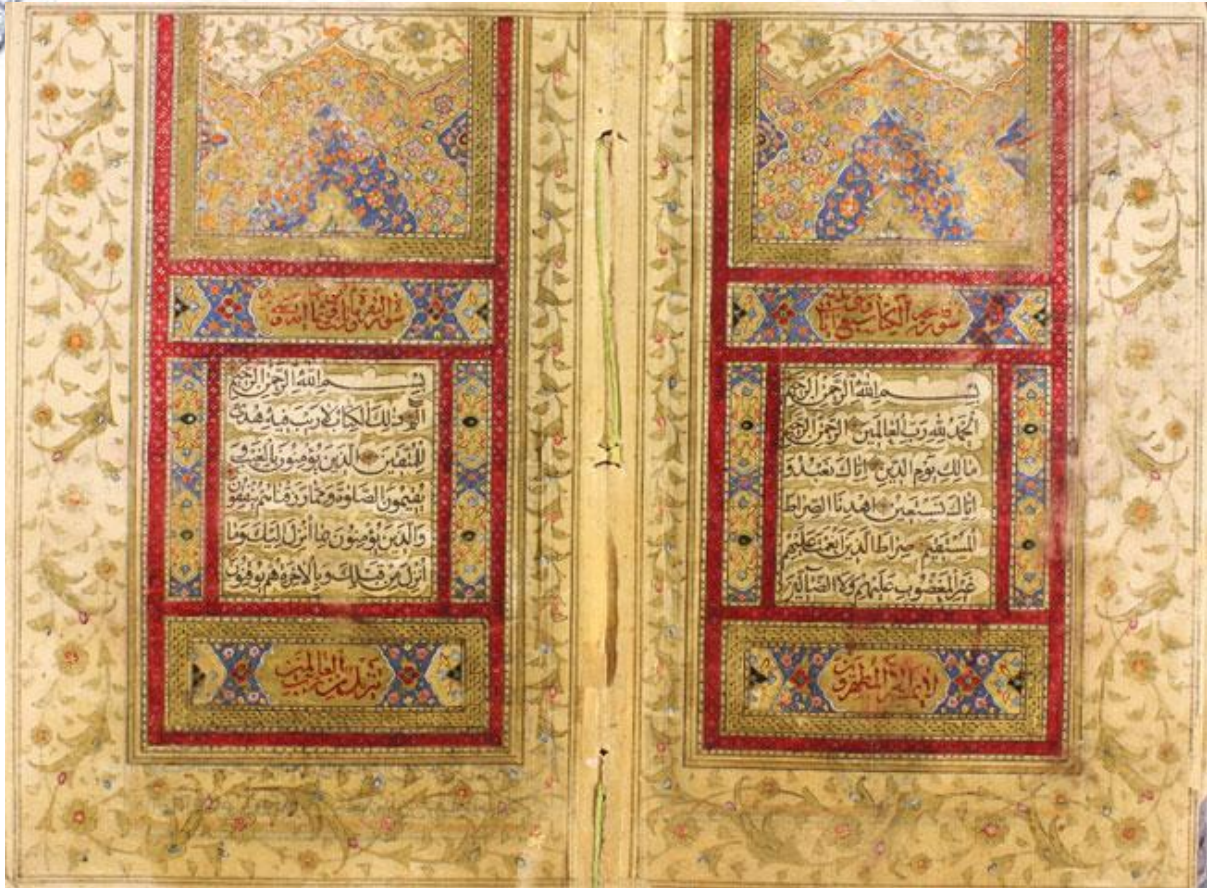 سورة فاتحة الكتاب سبع آيات
بِسْمِ اللهِ الرَّحْمٰنِ الرَّحِيمِ
اَلْحَمْدُ لِلّٰهِ رَبِّ الْعَالَمِينَ الرَّحْمٰنِ الرَّحِيمِ
مَالِكِ يَوْمِ الدِّينِ اِيَّاكَ نَعْبُدُ وَ
اِيَّاكَ نَسْتَعِينُ اِهْدِنَا الصِّرَاطَ
الْمُسْتَقِيمَ صِرَاطَ الَّذِينَ اَنْعَمْتَ عَلَيْهِمْ
غَيْرِ الْمَغْضُوبِ عَلَيْهِمْ وَلَا الضَّالِّينَ
لا يمسه الا المطهرون
سورة البقرة
بِسْمِ اللهِ الرَّحْمٰنِ الرَّحِيمِ
الٓمٓ ذٰلِكَ الْكِتَابُ لَا رَيْبَ فِيهِ هُدًى
لِلْمُتَّقِينَ الَّذِينَ يُؤْمِنُونَ بِالْغَيْبِ وَ
يُقِيمُونَ الصَّلٰوةَ وَمِمَّا رَزَقْنَاهُمْ يُنْفِقُونَ
وَالَّذِينَ يُؤْمِنُونَ بِمَا اُنْزِلَ اِلَيْكَ وَمَا
اُنْزِلَ مِنْ قَبْلِكَ وَبِالْاٰخِرَةِ هُمْ يُوقِنُونَ
تنزيل من رب العالمين